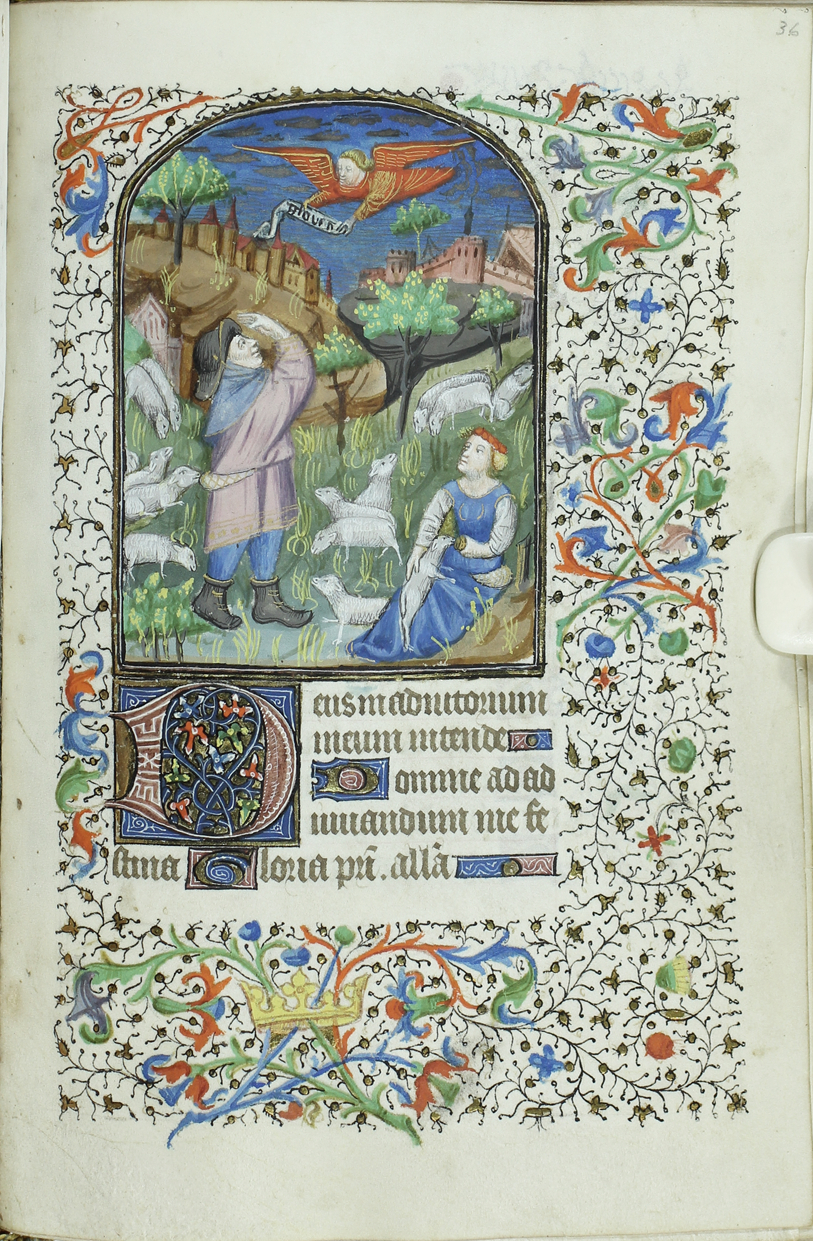 36
Deus in adiutorium
meum intende
Domine ad ad
iuuandum me fe
stina Gloria pr̄i. all̄a